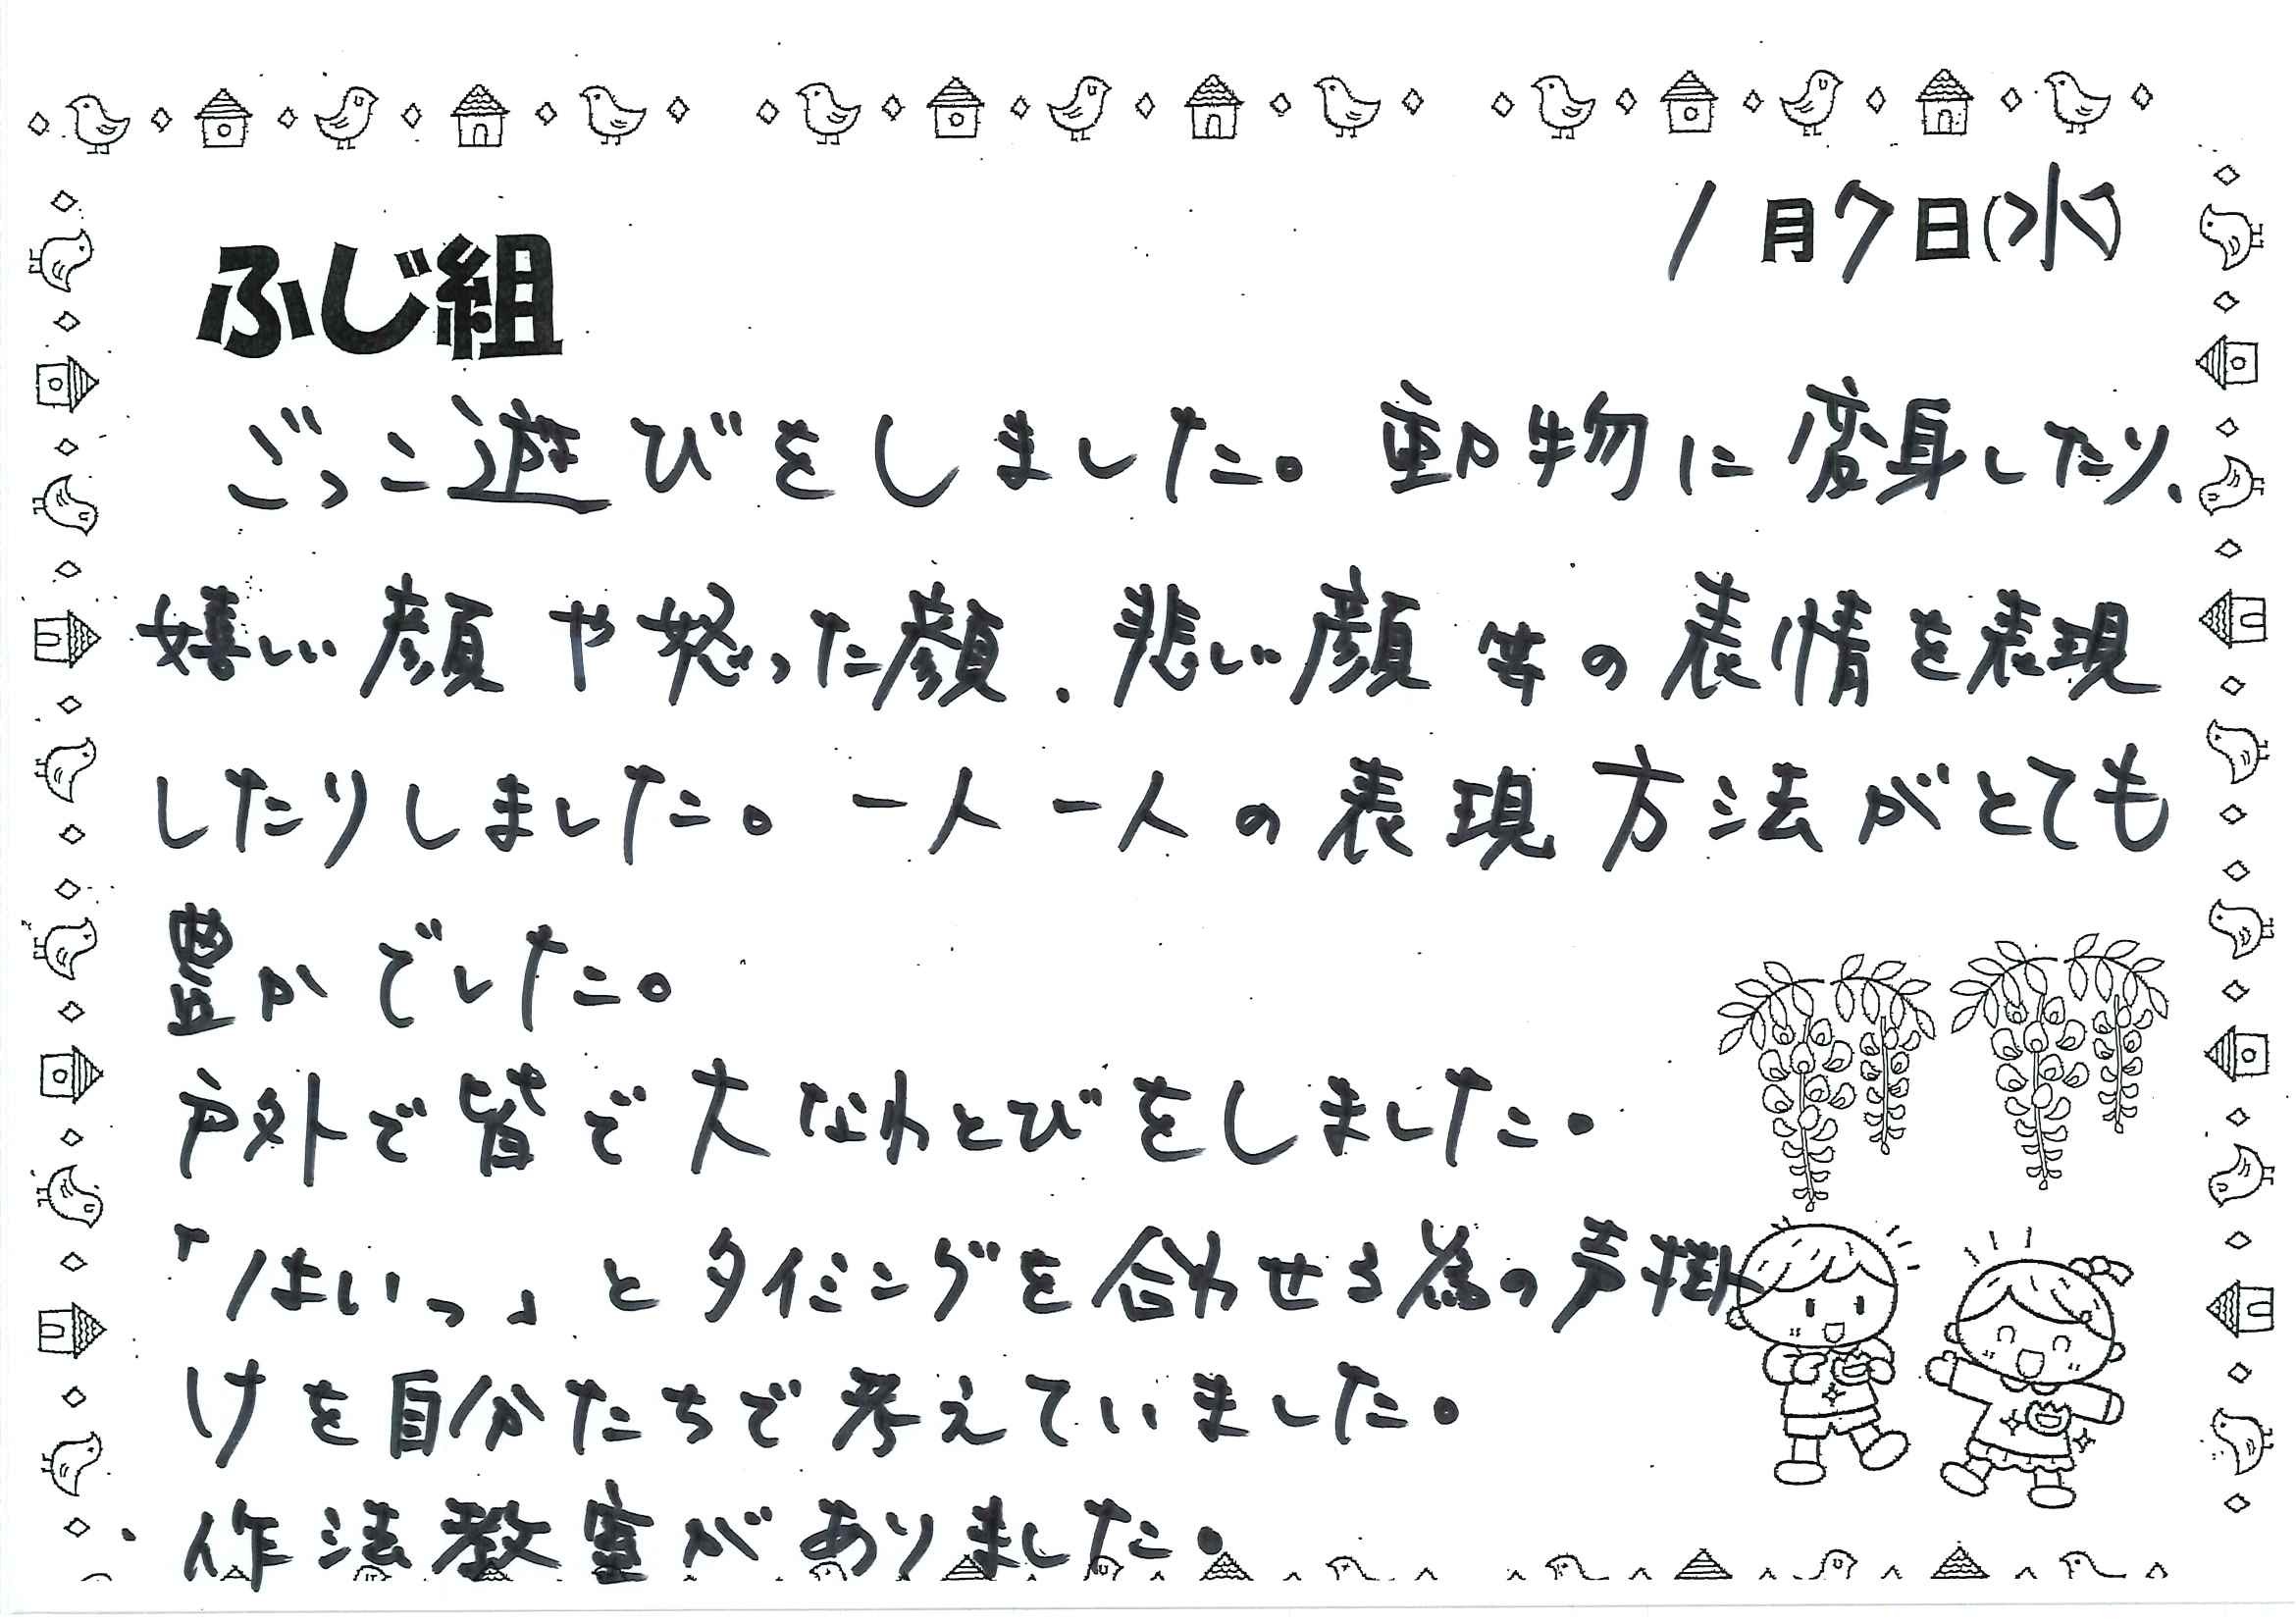 1月7日(水)
ふじ組
ごっこ遊びをしました。動物に変身したり、
嬉しい顔や怒った顔、悲しい顔等の表情を表現
したりしました。一人一人の表現方法がとても
豊かでした。
戸外で皆で大なわとびをしました。
「はいっ」とタイミングを合わせる為の声掛
けを自分たちで考えていました。
・作法教室がありました。